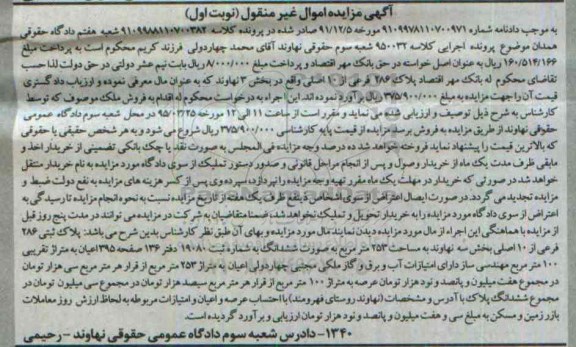 آگهی مزایده اموال غیر منقول (نوبت اول)
به موجب دادنامه شماره ۹۱۰۹۹۷۸۱۱۰۷۰۰۹۷۱ مورخه ۹۱/۱۲/۵ صادر شده در پرونده کلاسه ۹۱۰۹۹۸۸۱۱۰۷۰۰۳۸۲ شعبه هفتم دادگاه حقوقی
همدان موضوع پرونده اجرایی کلاسه ۹۵۰۰۳۲ شعبه سوم حقوقی نهاوند آقای محمد چهاردولی فرزند کریم محکوم است به پرداخت مبلغ
۱۶۰/۵۱۴/۱۶۶ ریال به عنوان اصل خواسته در حق بانک مهر اقتصاد و پرداخت مبلغ ۸/۰۰۰/۰۰۰ ریال بابت نیم عشر دولتی در حق دولت لذا حسب
تقاضای محکوم له بانک مهر اقتصاد پلاک ۲۸۶ فرعی از ۱۰ اصلی واقع در بخش ۳ نهاوند که به عنوان مال معرفی نموده و ارزیاب دادگستری
قیمت آن را جهت مزایده به مبلغ ۳۷۵/۹۰۰/۰۰۰ ریال برآورد نموده اند. این اجراء به درخواست محکوم له اقدام به فروش ملک موصوف که توسط
کارشناس به شرح ذیل توصیف و ارزیابی شده می نماید و مقرر است از ساعت ۱۱ الی ۱۲ مورخه ۹۵/۰۳/۲۵ در محل شعبه سوم دادگاه عمومی
حقوقی نهاوند از طریق مزایده به فروش برسد مزایده از قیمت پایه کارشناسی ۳۷۵/۹۰۰/۰۰۰ ریال شروع می شود و به هر شخص حقیقی یا حقوقی
که بالاترین قیمت را پیشنهاد نماید فروخته خواهد شد ده درصد وجه مزایده فی المجلس به صورت نقد یا چک بانکی تضمینی از خریدار اخذ و
مابقی ظرف مدت یک ماه از خریدار وصول و پس از انجام مراحل قانونی و صدور دستور تملیک از سوی دادگاه مورد مزایده به نام خریدار منتقل
خواهد شد در صورتی که خریدار در مهلت یک ماه مقرر بقیه وجه مزایده را نپردازد، سپرده وی پس از کسر هزینه های مزایده به نفع دولت ضبط و
مزایده تجدید می گردد. در صورت ایصال اعتراض از سوی اشخاص ذینفع ظرف یک هفته از تاریخ مزایده نسبت به نحوه انجام مزایده تا رسیدگی به
اعتراض از سوی دادگاه مورد مزایده را به خریدار تحویل و تملیک نخواهد شد، ضمنا متقاضیان به شرکت در مزایده می توانند در مدت پنج روز قبل
از مزایده با هماهنگی این اجراء از مال مورد مزایده دیدن نمایند مال مورد مزایده و بهای آن طبق نظر کارشناس بدین شرح می باشد: پلاک ثبتی ۲۸۶
فرعی از ۱۰ اصلی بخش سه نهاوند به مساحت ۲۵۳ متر مربع به صورت ششدانگ به شماره ثبت ۱۹۰۸۰ دفتر ۱۳۶ صفحه ۳۹۵ اعیان به متراژ تقریبی
۱۰۰ متر مربع مهندسی ساز دارای امتیازات آب و برق و گاز ملکی مجتبی چهاردولی اعیان به متراژ ۲۵۳ متر مربع از قرار هر متر مربع سی هزار تومان
در مجموع هفت میلیون و پانصد و نود هزار تومان عرصه به متراژ ۱۰۰ متر مربع از قرار هر متر مربع سیصد هزار تومان در مجموع سی میلیون تومان در
مجموع ششدانگ پلاک با آدرس و مشخصات (نهاوند روستای قهرومند) با احتساب عرصه و اعیان و امتیازات مربوطه به لحاظ ارزش روز معاملات
بازار زمین و مسکن به مبلغ سی و هفت میلیون و پانصد و نود هزار تومان ارزیابی و برآورد گردیده است.
۱۳۴۰- دادرس شعبه سوم دادگاه عمومی حقوقی نهاوند - رحیمی